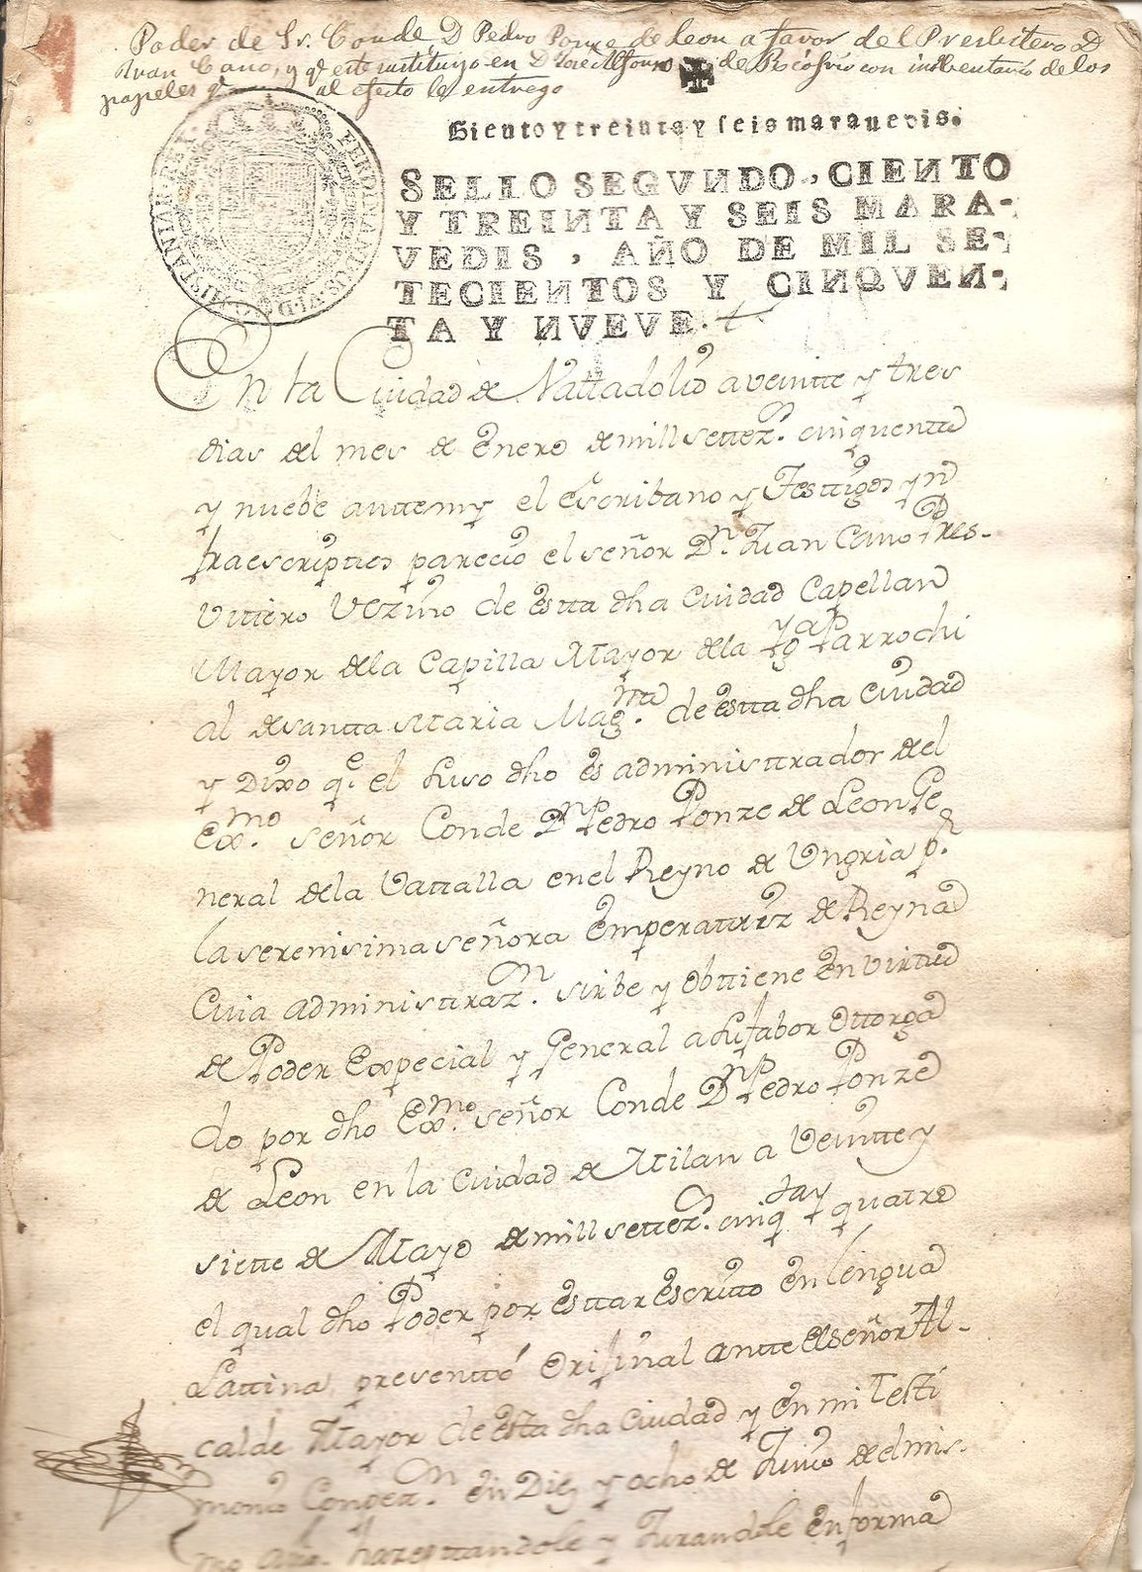 Poder de Sr. Conde D Pedro Ponze de Leon a favor del Presbitero D
Juan Cano, y qe este instituyo en D Jose Alfonso de Riofrio con imbentario de los
papeles qe al efecto le entrego
Siento y treinta y seis marauedis.
SELLO SEGVNDO, CIENTO
Y TREINTA Y SEIS MARA-
VEDIS, AÑO DE MIL SE-
TECIENTOS Y CINQVEN-
TA Y NVEVE.
FERDINANDVS VI D G HISPANIAR REX
En la Ciudad de Valladolid a veintte y tres
dias del mes de Enero de mill settez.s cinquentta
y nuebe anttemy el escribano y Testtigos yn
fraescripttos parecio el señor Dn. Juan Cano Pres-
vittero Vezino de Estta dha Ciudad Capellan
Mayor de la Capilla Mayor de la Yga Parrochi
al de santta Maria Magna. de estta dha Ciudad
y Dixo qe. el suso dho es administtrador del
Exmo. señor Conde Dn Pedro Ponze de Leon Ge
neral de la Vattalla en el Reyno de Ungria pr.
la serenisima señora Emperattriz de Reyna
Cuia administtrazn. sirbe y obttiene en virttud
de Poder Expecial y General a su fabor ottorga
do por dho Exmo. señor Conde Dn Pedro Ponze
de Leon en la Ciudad de Milan a Veintte y
siette de Mayo de mill settezs. cinqta y quatro
el qual dho Poder por esttar escritto en lengua
Lattina, presenttó orijinal antte el señor Al-
calde Mayor de esta dha Ciudad y en mi Testi
monio Conpezn. en Diez y ocho de Junio del mis-
mo año. y Jurandole en forma